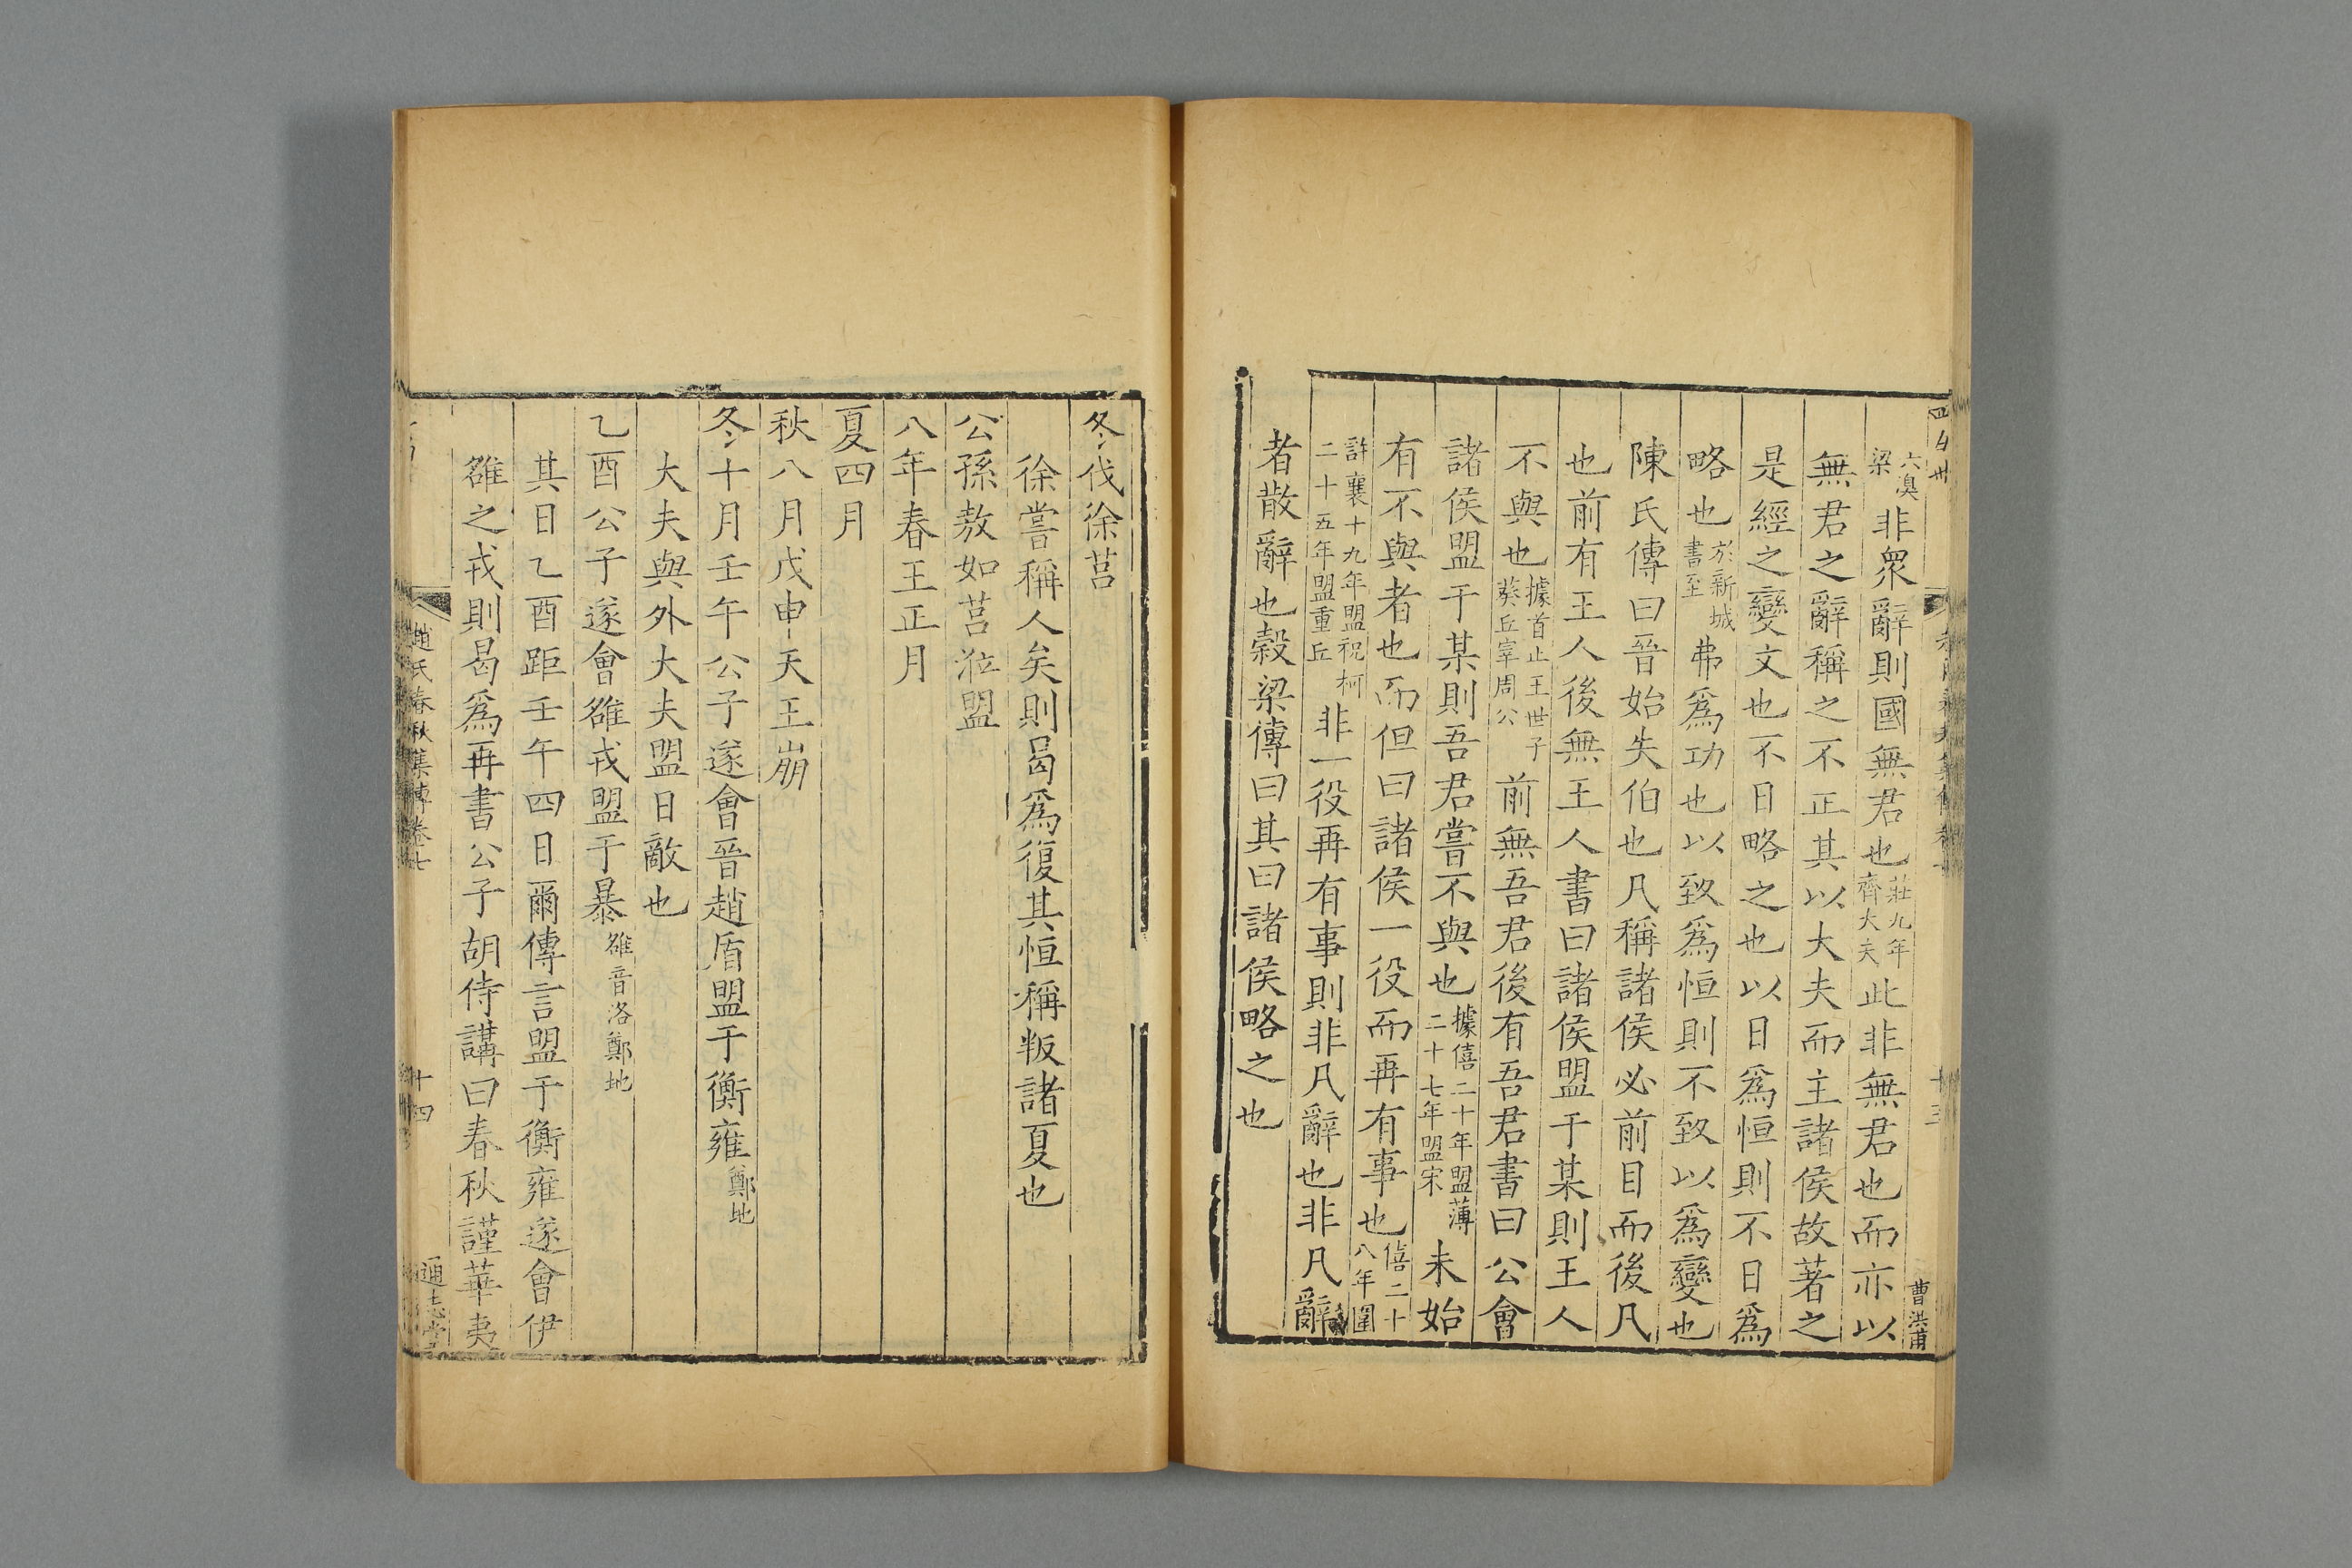 六溴梁非眾辭則國無君也莊九年齊大夫此非無君也而亦以
無君之辭稱之不正其以大夫而主諸侯故著之
是經之變文也不日略之也以日爲恒則不日爲
略也於新城書至弗爲功也以致爲恒則不致以爲變也
陳氏傳曰晉始失伯也凡稱諸侯必前目而後凡
也前有王人後無王人書曰諸侯盟于某則王人
不與也據首止王世子葵丘宰周公前無吾君後有吾君書曰公會
諸侯盟于某則吾君嘗不與也據僖二十年盟薄二十七年盟宋未始
有不與者也而但曰諸侯一役而再有事也僖二十八年圍
許襄十九年盟祝柯二十五年盟重丘非一役再有事則非凡辭也非凡辭
者散辭也穀梁傳曰其曰諸侯略之也
曹洪甫
冬伐徐莒
徐嘗稱人矣則曷爲復其恒稱叛諸夏也
公孫敖如莒涖盟
八年春王正月
夏四月
秋八月戊申天王崩
冬十月壬午公子遂會晉趙盾盟于衡雍鄭地
大夫與外大夫盟日敵也
乙酉公子遂會雒戎盟于暴雒音洛鄭地
其日乙酉距壬午四日爾傳言盟于衡雍遂會伊
雒之戎則曷爲再書公子胡侍講曰春秋謹華夷
趙氏春秋集傳卷七
十四
通志堂